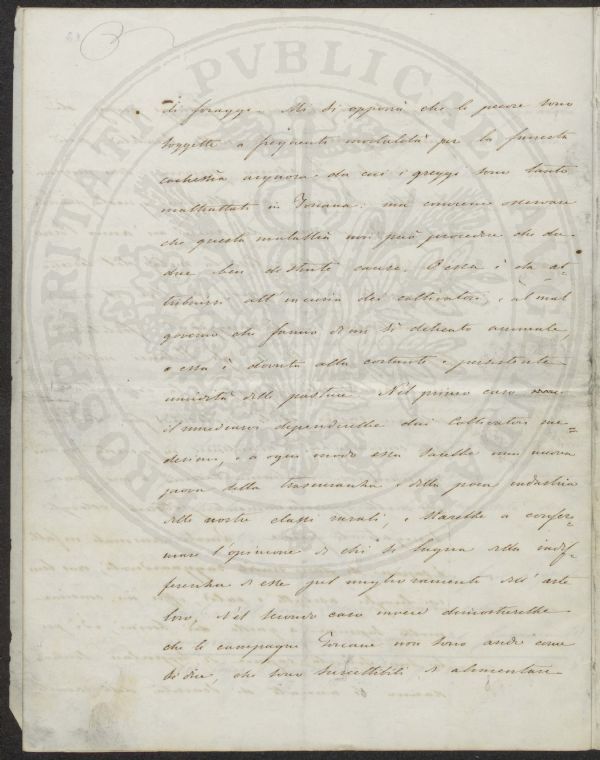 di foraggi. Mi si opporrà che le pecore sono
soggette a frequenti mortalità per la funesta
cachessia acquosa da cui i greggi sono tanto
maltrattati in Toscana: ma conviene osservare
che questa malattia non può procedere che da
due ben distinte cause. O essa è da at=
tribuirsi all'incuria dei coltivatori, e al mal
governo che fanno di un sì delicato animale,
o essa è dovuta alla costante e persistente
umidità delle pasture. Nel primo caso
il rimediarvi dipenderebbe dai Coltivatori me=
desimi, e a ogni modo essa sarebbe una nuova
prova della trascuranza e della poca industria
delle nostre classi rurali, e starebbe a confer=
mare l'opinione di chi si lagna della indif=
ferenza di esse pel miglioramento dell'arte
loro. Nel secondo caso invece dimostrerebbe
che le campagne Toscane non sono aride come
si dice, che sono suscettibili di alimentare
PROSPERITATI PVBLICAE